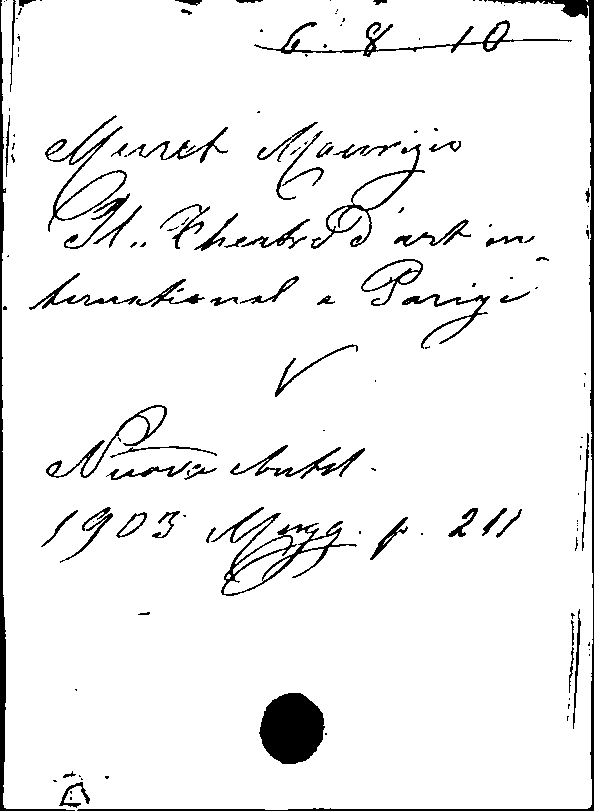 6. 8. 10
Muret Maurizio
Il „Theatre D'art in
ternational a Parigi
V
Nuova Antol.
1903 Magg. p. 211